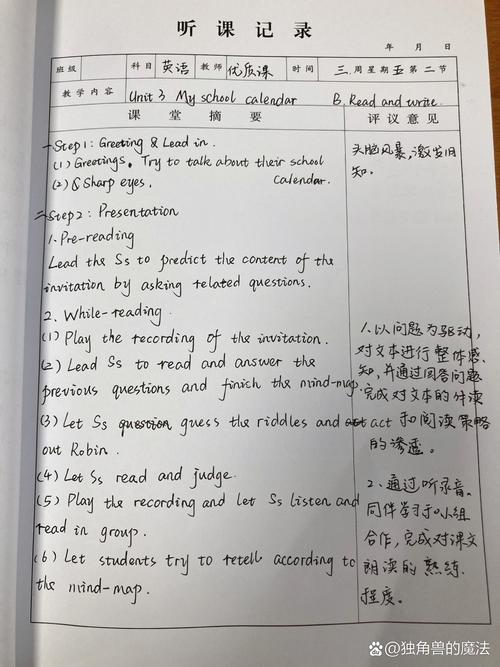 听课记录
年 月 日
班级 科目 英语 教师 优质课 时间 三周星期五第二节
教学内容 Unit 3 My school calendar B. Read and write.
课堂摘要 评议意见
一 Step 1: Greeting & Lead in.
(1) Greetings. Try to talk about their school
(2) & Sharp eyes. calendar.
二 Step 2: Presentation
1. Pre-reading
Lead the Ss to predict the content of the
invitation by asking related questions.
2. While-reading.
(1) Play the recording of the invitation.
(2) Lead Ss to read and answer the
previous questions and finich the mind-map.
(3) Let Ss guess the riddles and act
out Robin.
(4) Let Ss read and judge.
(5) Play the recording and let Ss listen and
read in group.
(6) Let students try to retell according to
the mind-map.
头脑风暴,激发旧
知。
1. 以问题为驱动,
对文本进行整体感
知,并通过回答问题
完成对文本的解读
和阅读策略
的渗透。
2. 通过听录音,
同伴学习于小组
合作,完成对课文
朗读的熟练
程度。
@独角兽的魔法